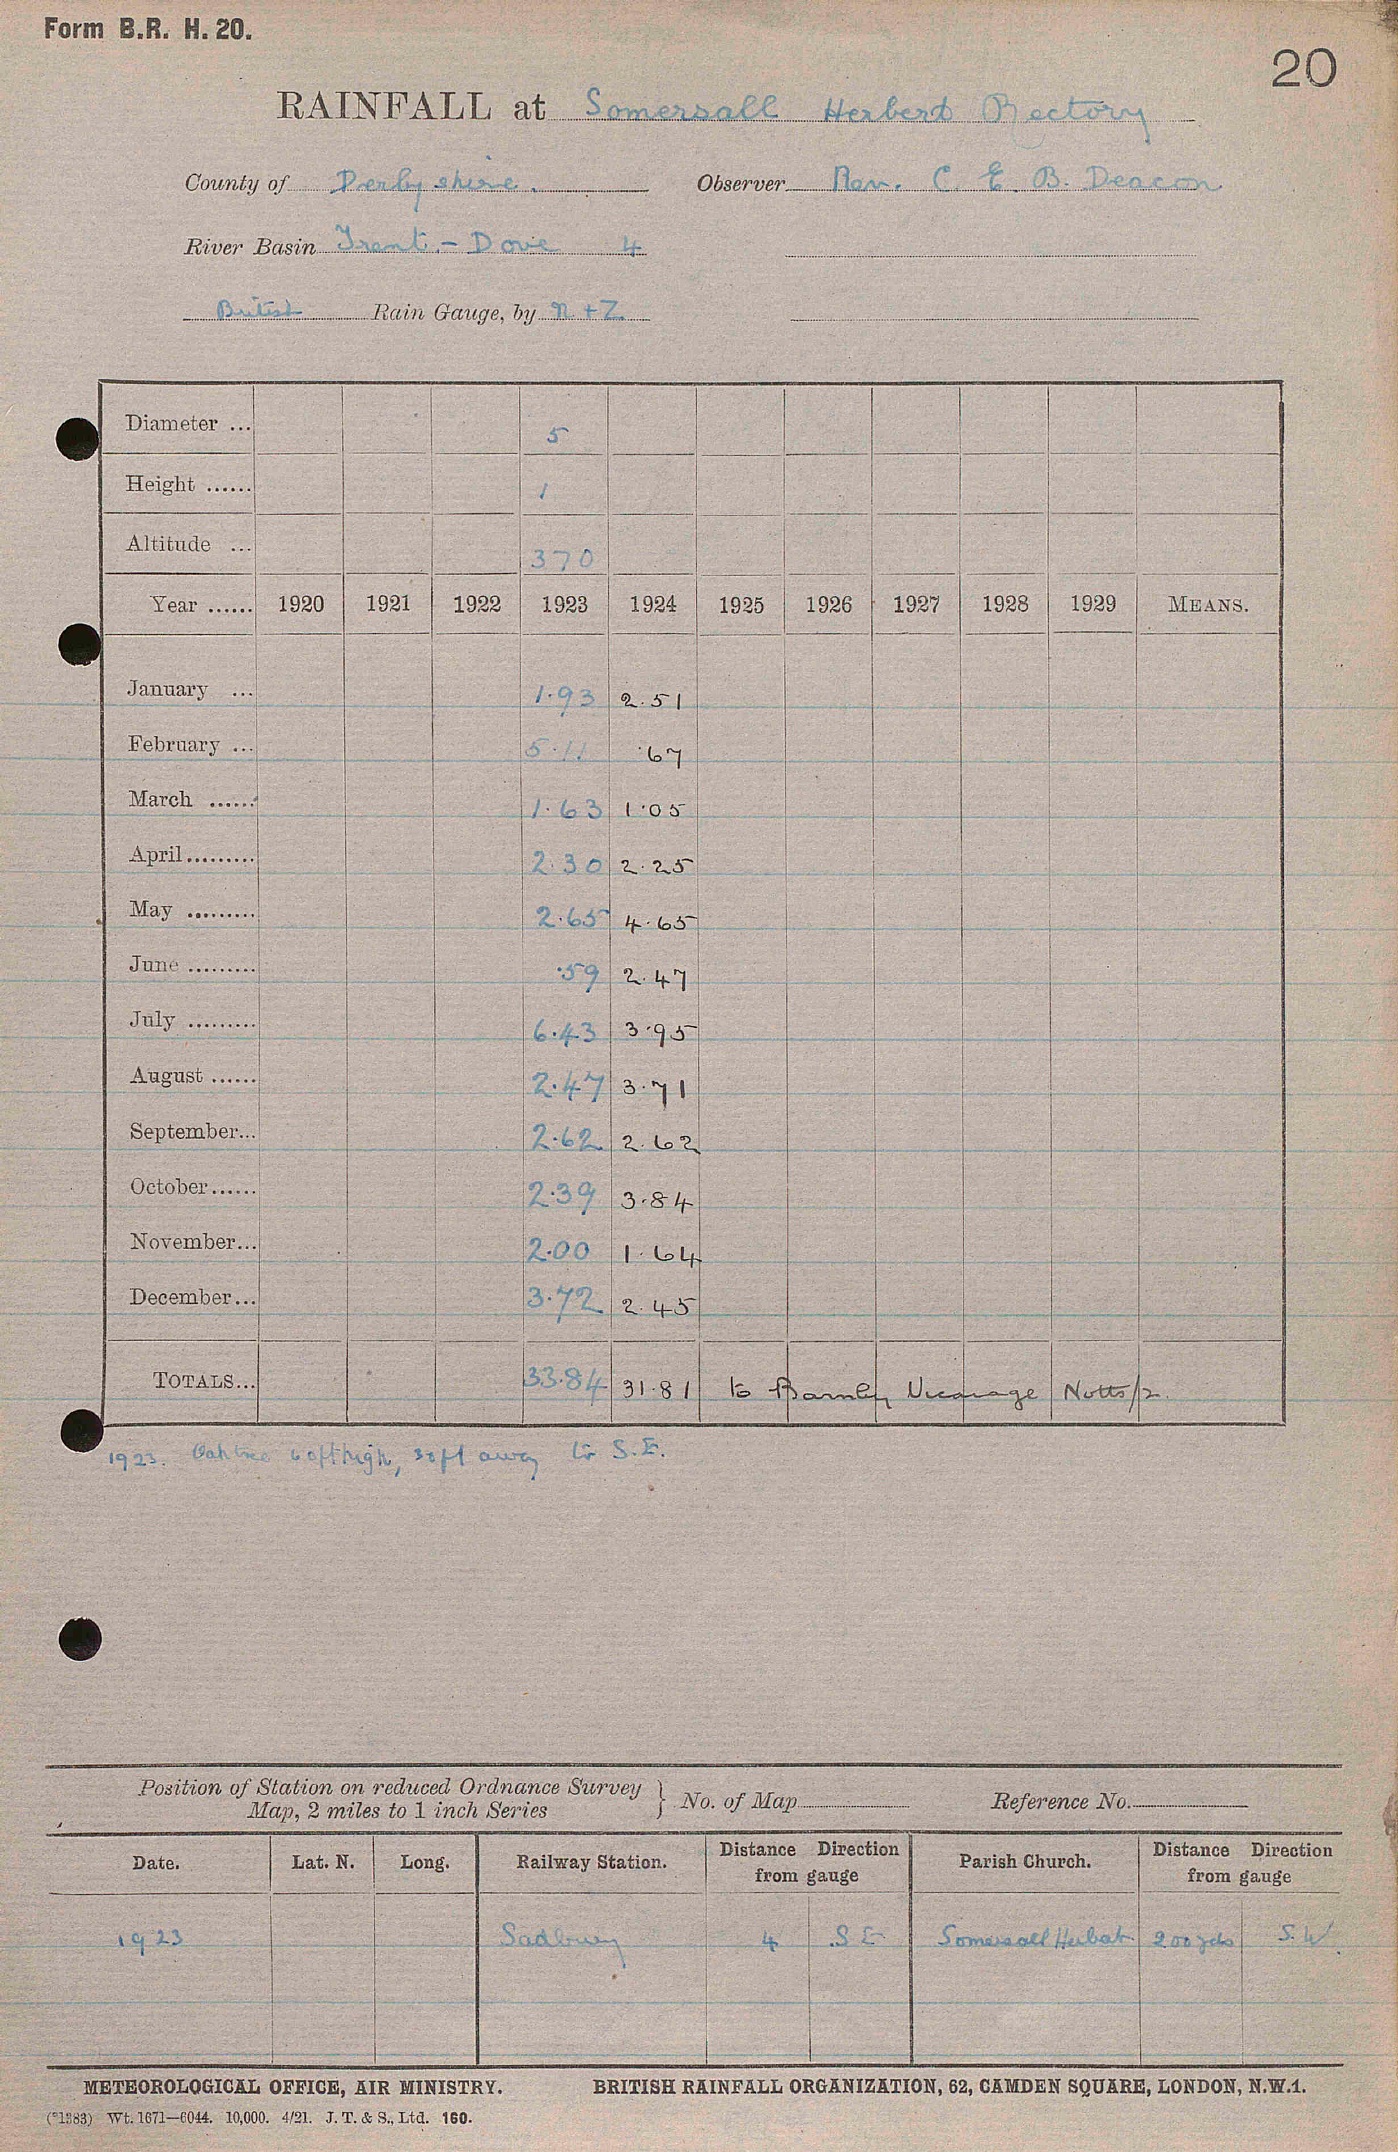 Form B.R. H. 20.
20
RAINFALL at Somersall Herbert Rectory
County of Derbyshire. Observer Rev. C. E. B. Deacon
River Basin Trent - Dove 4
British Rain Gauge, by N + Z
Diameter ... 5
Height ...... 1
Altitude ... 370
Year ...... 1920 1921 1922 1923 1924 1925 1926 1927 1928 1929 MEANS.
January ... 1.93 2.51
February ... 5.11 .67
March ...... 1.63 1.05
April ......... 2.30 2.25
May ......... 2.65 4.65
June ......... .59 2.47
July ......... 6.43 3.95
August ...... 2.47 3.71
September... 2.62 2.62
October ...... 2.39 3.84
November... 2.00 1.64
December... 3.72 2.45
TOTALS... 33.84 31.81 to Barnby Vicarage Notts/2.
1923. Oak tree 60ft high, 30ft away to S.E.
Position of Station on reduced Ordnance Survey
Map, 2 miles to 1 inch Series } No. of Map Reference No.
Date. Lat. N. Long. Railway Station. Distance Direction from gauge Parish Church. Distance Direction from gauge
1923 Sudbury 4 S E Somersall Herbert 200 yds S.W.
METEOROLOGICAL OFFICE, AIR MINISTRY. BRITISH RAINFALL ORGANIZATION, 62, CAMDEN SQUARE, LONDON, N.W.1.
(*1383) Wt. 1671—6044. 10,000. 4/21. J. T. & S., Ltd. 160.